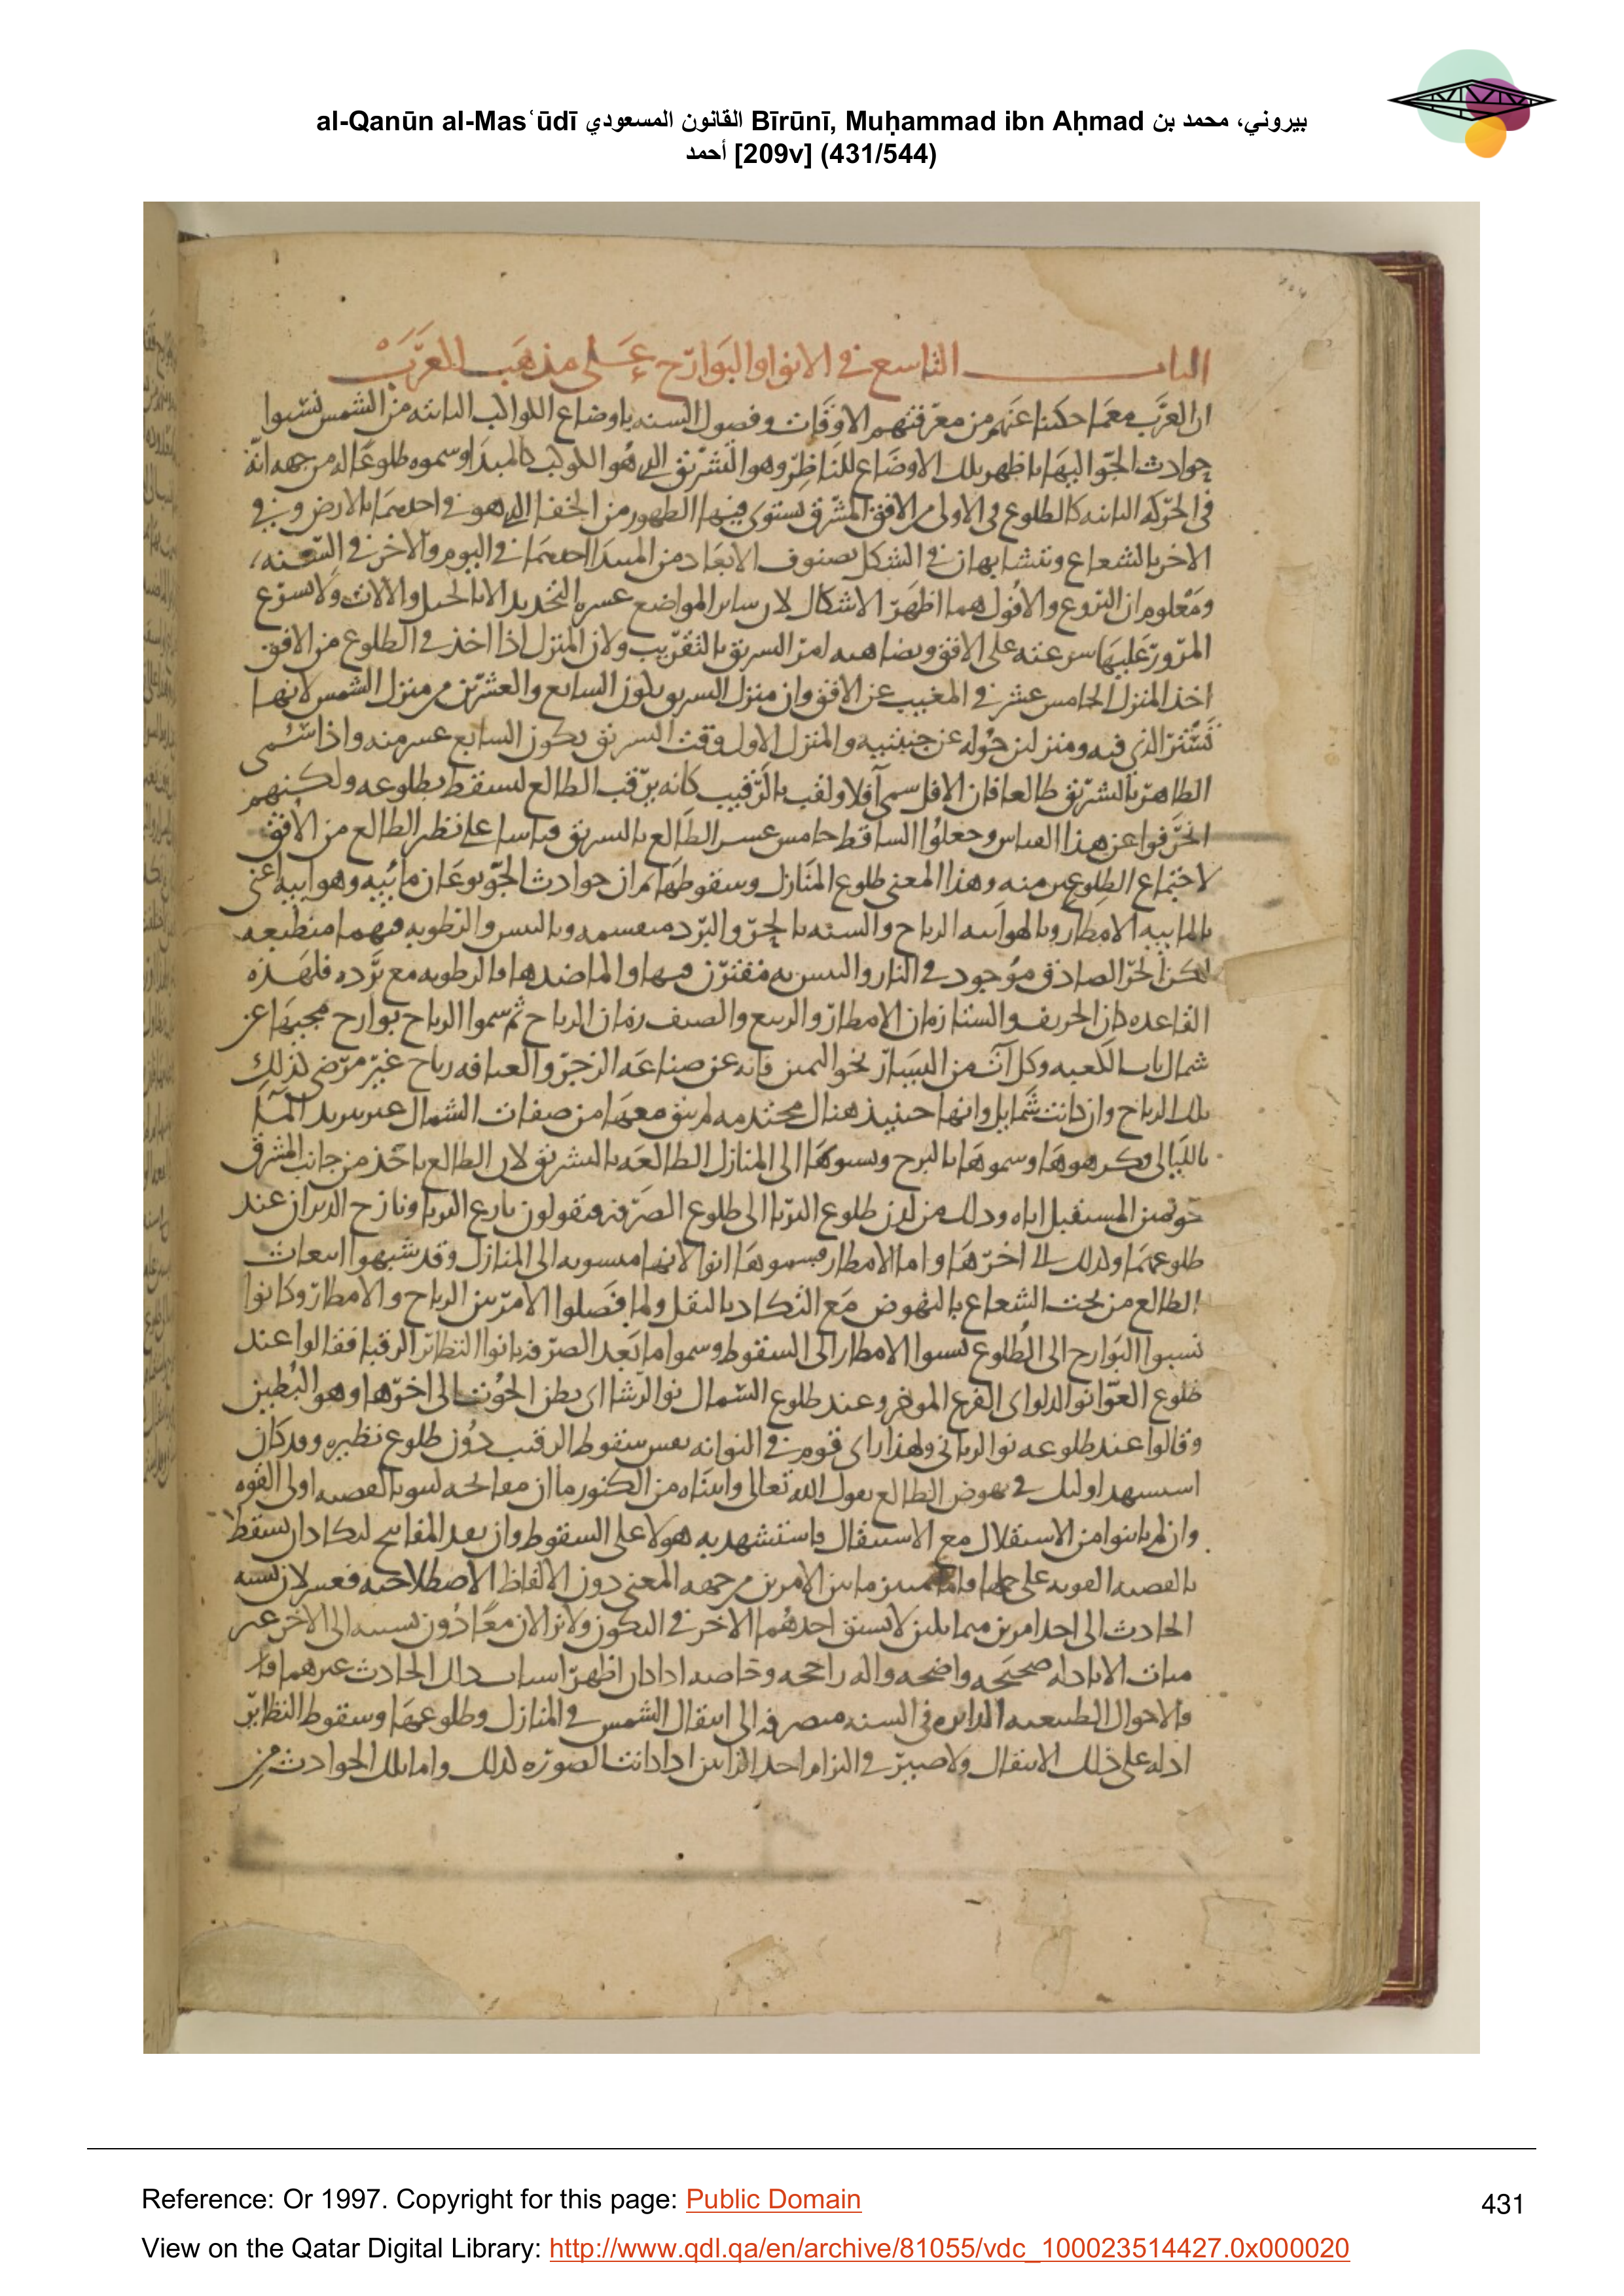 al-Qanūn al-Masʿūdī القانون المسعودي Bīrūnī, Muḥammad ibn Aḥmad بيروني، محمد بن
أحمد [209v] (431/544)
الباب التاسع في الانوا والبوارح على مذهب العرب
ان العرب مع ما حكينا عنهم من معرفتهم الاوقات وفصول السنه باوضاع الكواكب الثابته من الشمس نسبوا
حوادث الجو اليها ما ظهر تلك الاوضاع للناظر وهو التشريق الذي هو للكوكب كالمبدا وسموه طلوعا له من جهه انه
في الحركه الثانيه كالطلوع في الاولى من الافق المشرق يستوى فيهما الظهور من الخفا الذي هو في احديهما بالارض وفي
الاخر بالشعاع ويتشابهان في الشكل بصنوف الابعاد من المبدا احديهما في اليوم والاخر في السنه
ومعلوم ان البزوع والافول هما اظهر الاشكال لان سائر المواضع عسره التحديد الا بالحيل والالات ولا يسرع
المرور عليها سرعته على الافق ويضاهيه امر التشريق بالتقريب ولان المنزل اذا اخذ في الطلوع من الافق
اخذ المنزل الخامس عشر في المغيب عن الافق وان منزل التشريق يكون السابع والعشرين من منزل الشمس لانها
تستر الذي فيه ومنزلين حوله عن جنبتيه والمنزل الاول وقت التشريق يكون السابع عشر منه واذا سمى
الظاهر بالتشريق طالعا فان الافل سمى آفلا ولقب بالرقيب كانه يرقب الطالع ليسقط بطلوعه ولكنهم
انحرفوا عن هذا القياس وجعلوا الساقط خامس عشر الطالع بالتشريق قياسا على نظير الطالع من الافق
لاجتماع الطلوعين منه وهذا المعنى طلوع المنازل وسقوطها ثم ان حوادث الجو نوعان مائيه وهوائيه اعنى
بالمائيه الامطار وبالهوائيه الرياح والسنه بالحر والبرد منقسمه وباليبس والرطوبه فيهما منطبعه
لكن الحر الصادق موجود في النار واليبس به مقترن فيها والماضدها فالرطوبه مع برده فلهذه
القاعده كان الخريف والشتا زمان الامطار والربيع والصيف زمان الرياح ثم سموا الرياح بوارح لمجيها عن
شمال باب الكعبه وكل آت من اليسار نحو اليمين فانه عن صناعه الزجر والعيافه رياح غير مرضى لذلك
تلك الرياح وان كانت شمايل وانها حينيذ هناك محتدمه لم يبق معها من صفات الشمال
بالليالى فكرهوها وسموها بالبرح ونسبوها الى المنازل الطالعه بالتشريق لان الطالع ياخذ من جانب المشرق
نحو يمين المستقبل اياه وذلك من لدن طلوع الثريا الى طلوع الصرفه فيقولون بارح الثريا وبارح الدبران عند
طلوعهما وكذلك الى اخرها واما الامطار فيسموها انوا لانها منسوبه الى المنازل وقد شبهوا انبعاث
الطالع من تحت الشعاع بالنهوض مع التكاد بالثقل ولما فصلوا الامر بين الرياح والامطار وكانوا
نسبوا البوارح الى الطلوع نسبوا الامطار الى السقوط وسموا ما بعد الصرفه بانوا النظائر الرقبا فقالوا عند
طلوع العوا نو الدلو اي الفرع الموخر وعند طلوع السماك نو الرشا اي بطن الحوت الى اخرها وهو البطين
وقالوا عند طلوعه نو الزباني ولهذا راى قوم في النو انه نفس سقوط الرقيب دون طلوع نظيره وقد كان
استشهد اوليك في نهوض الطالع بقول الله تعالى واتيناه من الكنوز ما ان مفاتحه لتنو بالعصبه اولى القوه
وان لم يابنوا من الاستقلال مع الاستثقال فاستشهد به هولا على السقوط وان بعد المفاتيح ليكاد ان يسقط
بالعصبه القويه على حملها فاما التمييز ما بين الامرين من جهه المعنى دون الالفاظ الاصطلاحيه فعسر لان نسبه
الحادث الى احد امرين متماثلين لا يسبق احدهما الاخر في التكون ولا يزالان معا دون نسبته الى الاخر غير
متات الا بادله صحيحه واضحه واله راجحه وخاصه اذا كان اظهر اسباب ذلك الحادث غيرهما
والاحوال الطبيعيه الدائره في السنه منصرفه الى انتقال الشمس في المنازل وطلوعها وسقوط النظائر
ادله على ذلك الانتقال ولا ضير في التزام احد الرايين اذا كانت الصوره كذلك واما تلك الحوادث من
Reference: Or 1997. Copyright for this page: Public Domain
431
View on the Qatar Digital Library: http://www.qdl.qa/en/archive/81055/vdc_100023514427.0x000020